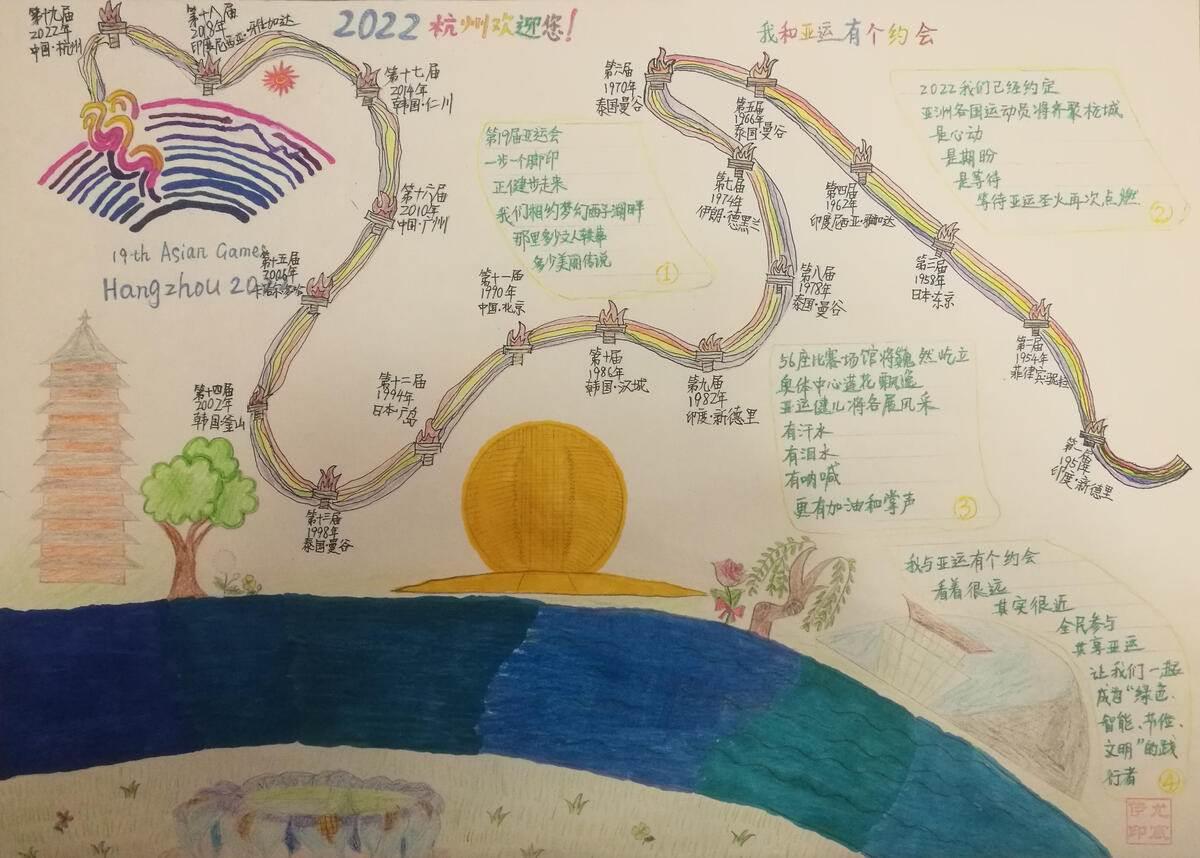 2022 杭州欢迎您!
我和亚运有个约会
第十九届
2022年
中国·杭州
第十八届
2018年
印度尼西亚·雅加达
第十七届
2014年
韩国·仁川
第十六届
2010年
中国·广州
第十五届
2006年
卡塔尔·多哈
第十四届
2002年
韩国·釜山
第十三届
1998年
泰国·曼谷
第十二届
1994年
日本·广岛
第十一届
1990年
中国·北京
第十届
1986年
韩国·汉城
第九届
1982年
印度·新德里
第八届
1978年
泰国·曼谷
第七届
1974年
伊朗·德黑兰
第六届
1970年
泰国曼谷
第五届
1966年
泰国·曼谷
第四届
1962年
印度尼西亚·雅加达
第三届
1958年
日本·东京
第二届
1954年
菲律宾·
第一届
1951年
印度·新德里
19th Asian Games
Hangzhou 20
第19届亚运会
一步一个脚印
正健步走来
我们相约梦幻西子湖畔
那里多少文人轶事
多少美丽传说
①
2022我们已经约定
亚洲各国运动员将齐聚杭城
是心动
是期盼
是等待
等待亚运圣火再次点燃
②
56座比赛场馆将巍然屹立
奥体中心莲花飘逸
亚运健儿将各展风采
有汗水
有泪水
有呐喊
更有加油和掌声
③
我与亚运有个约会
看着很远
其实很近
全民参与
共享亚运
让我们一起
成为“绿色、
智能、节俭、
文明”的践
行者
④